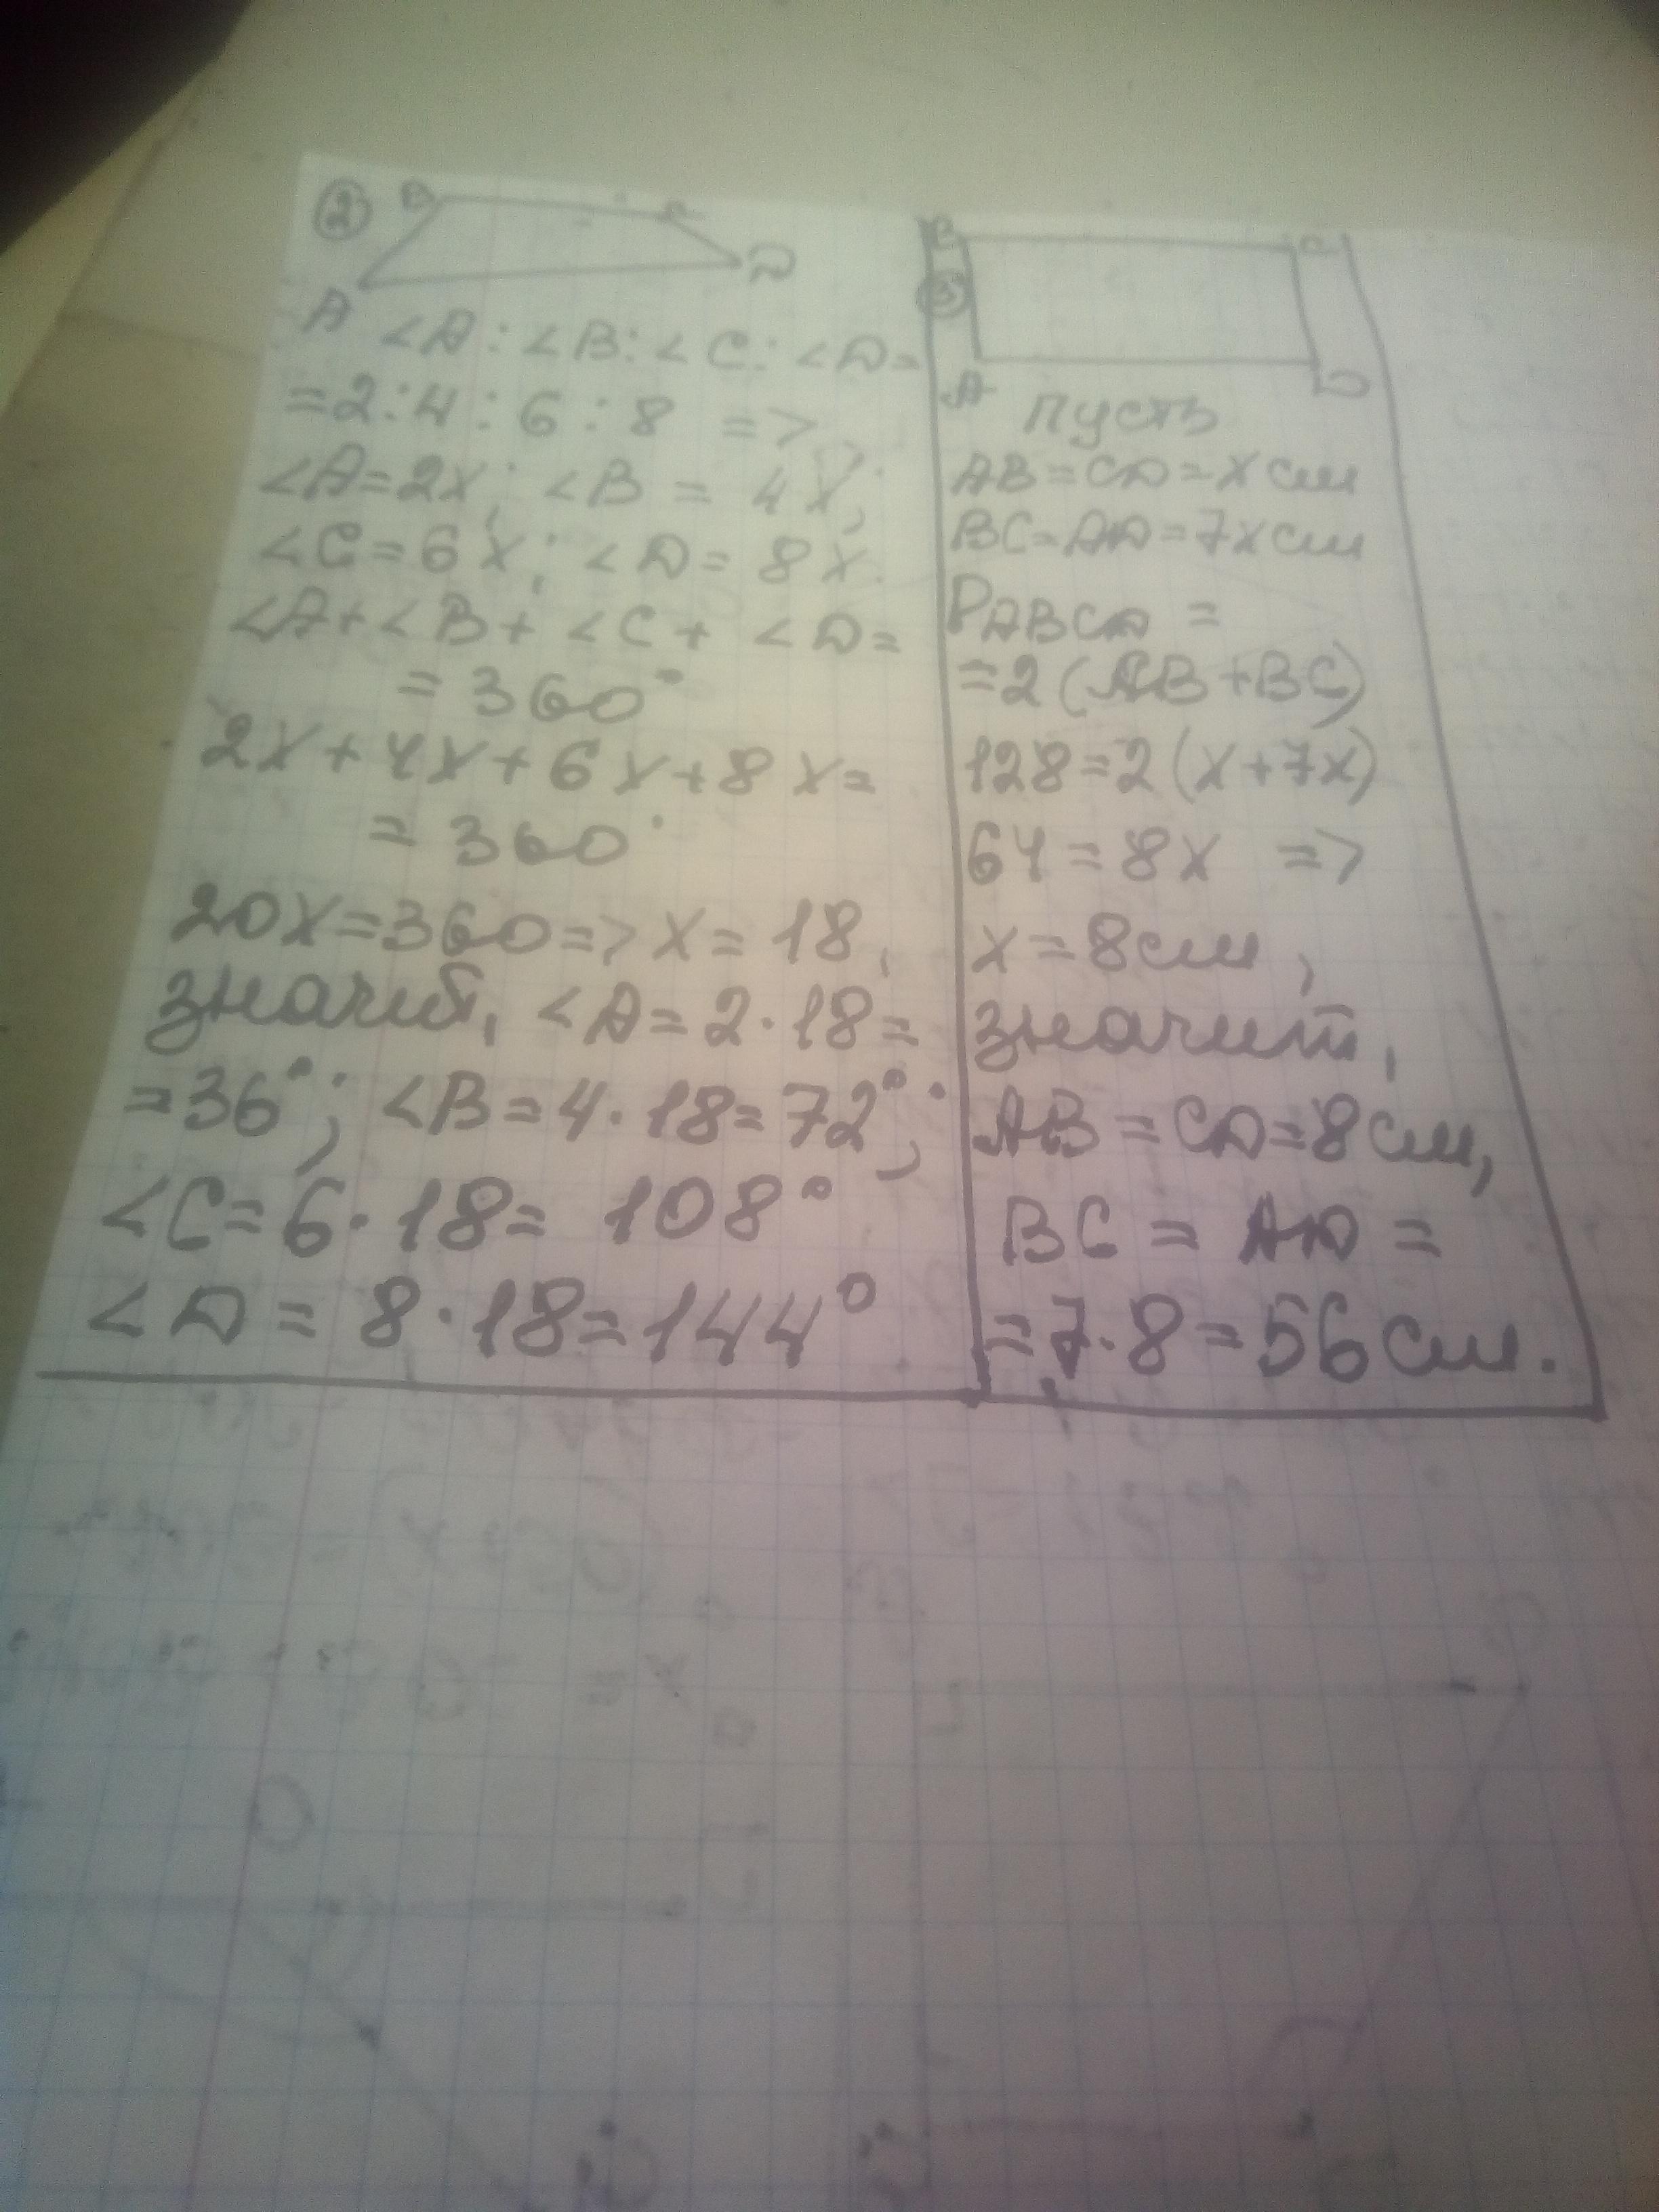 2
B C
A D
<A : <B : <C : <D =
= 2 : 4 : 6 : 8 =>
<A = 2x; <B = 4x;
<C = 6x; <D = 8x.
<A + <B + <C + <D =
= 360°
2x + 4x + 6x + 8x =
= 360°
20x = 360 => x = 18,
значит, <A = 2 · 18 =
= 36°; <B = 4 · 18 = 72°;
<C = 6 · 18 = 108°
<D = 8 · 18 = 144°
B C
3
A D
пусть
AB = CD = x см
BC = AD = 7x см
PABCD =
= 2 (AB + BC)
128 = 2 (x + 7x)
64 = 8x =>
x = 8 см,
значит,
AB = CD = 8 см,
BC = AD =
= 7 · 8 = 56 см.